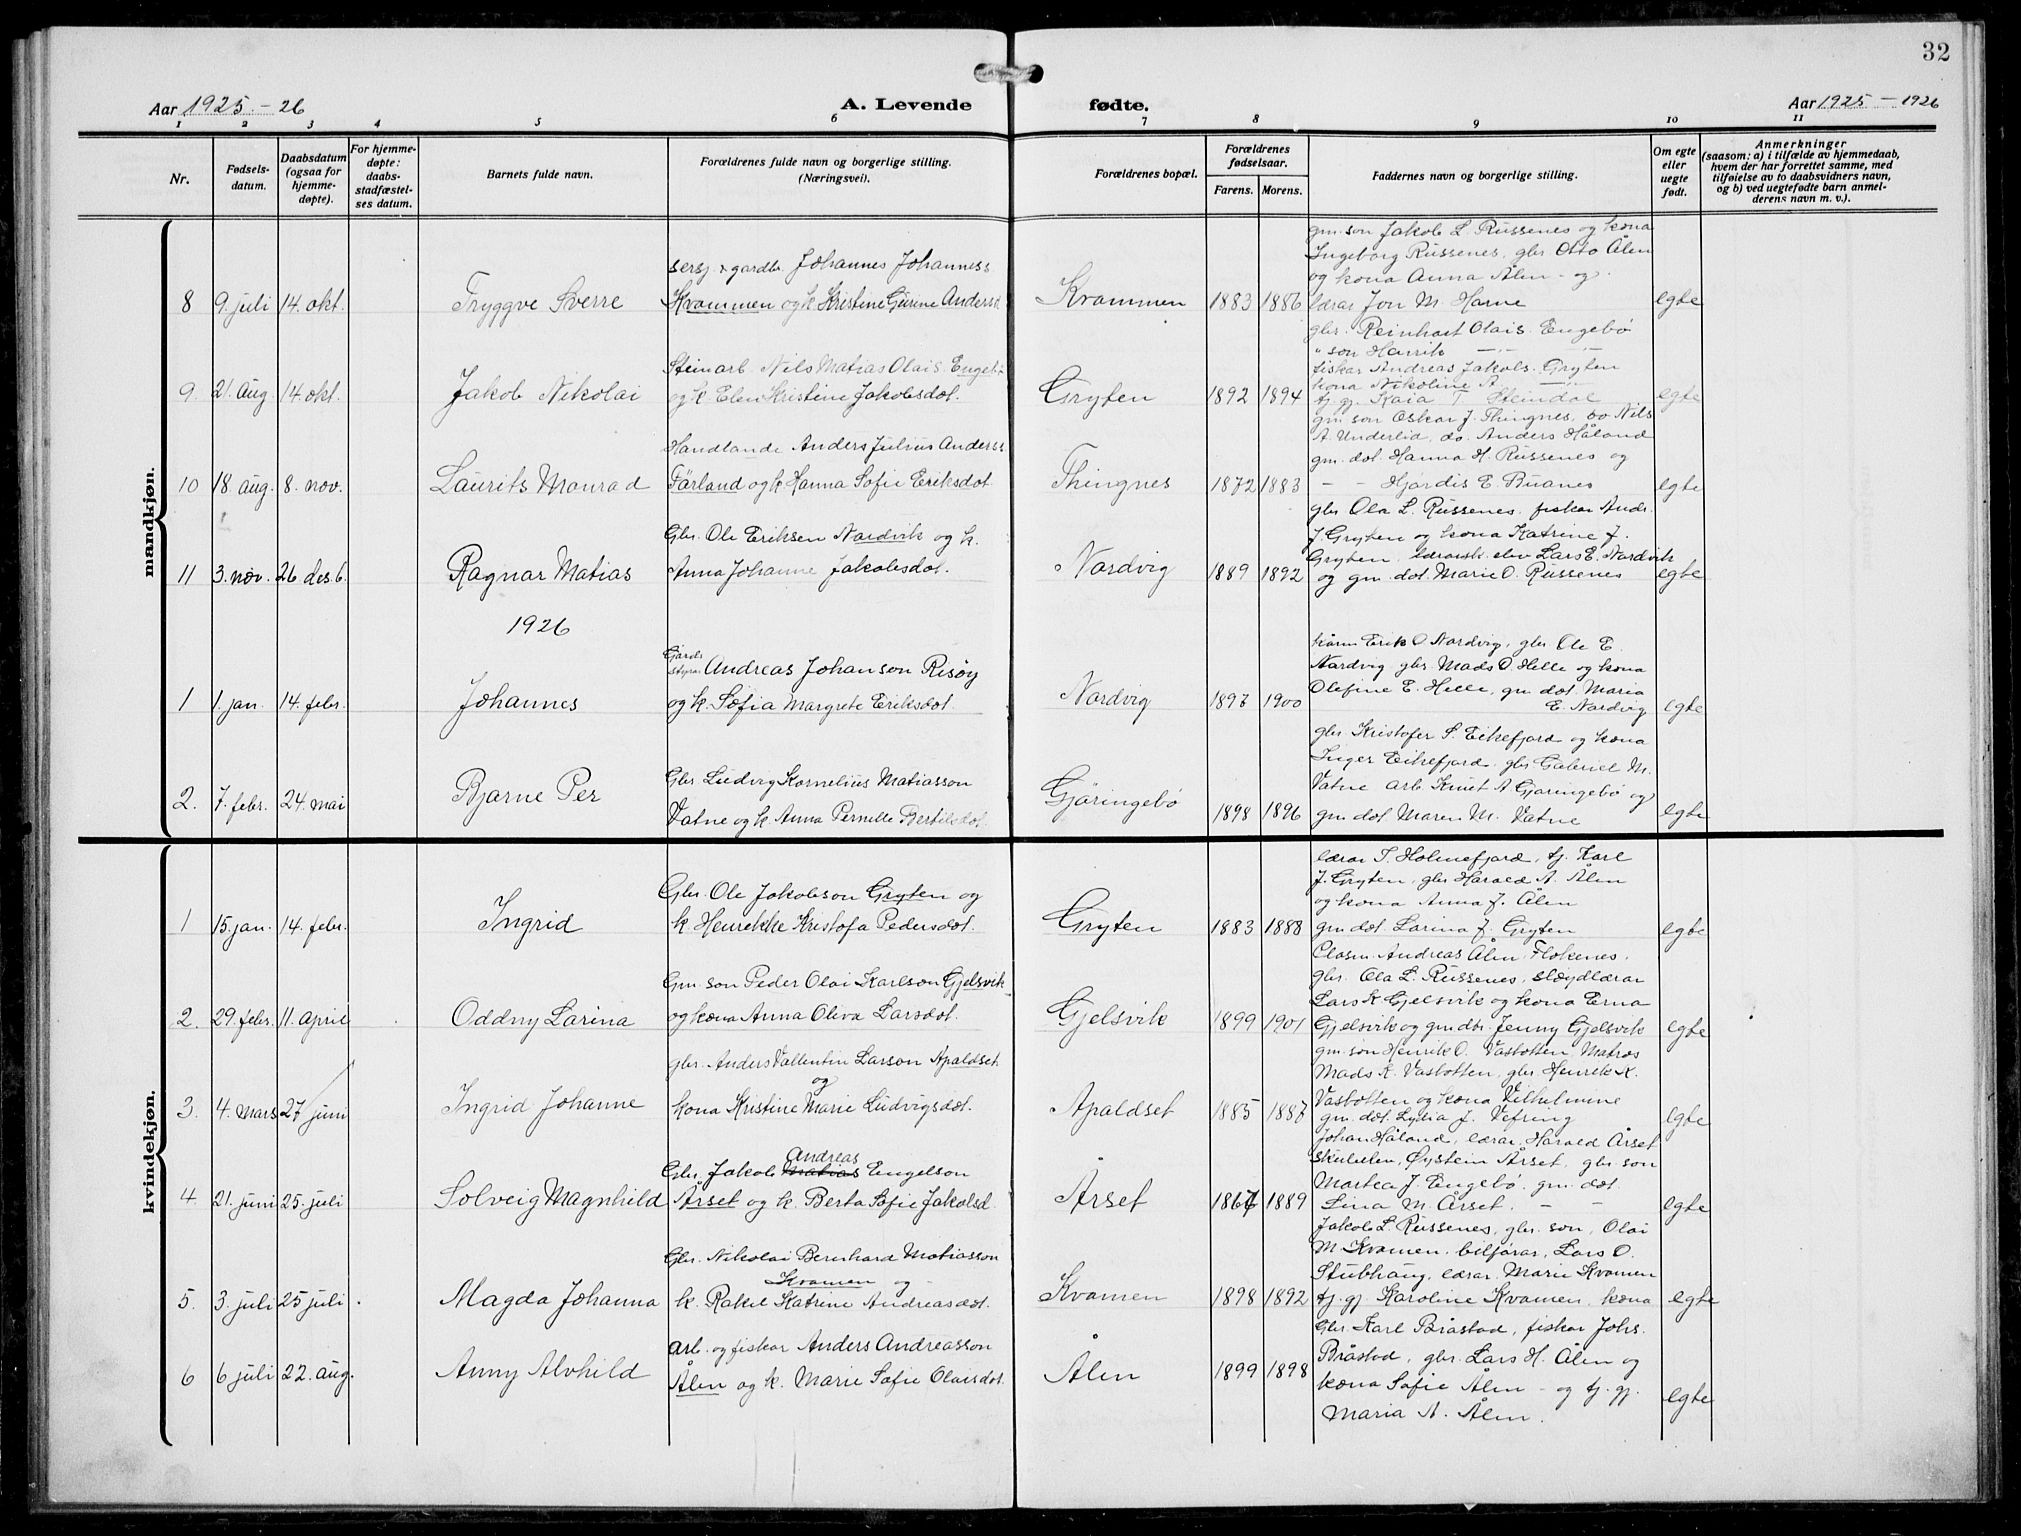 32
Aar 1925 - 26
A. Levende fødte.
Aar 1925 - 1926
1 2 3 4 5 6 7 8 9 10 11
Nr.
Fødsels-
datum.
Daabsdatum
(ogsaa for
hjemme-
døpte).
For hjemme-
døpte:
daabs-
stadfæstel-
ses datum.
Barnets fulde navn.
Forældrenes fulde navn og borgerlige stilling.
(Næringsvei).
Forældrenes bopæl.
Forældrenes
fødselsaar.
Farens. Morens.
Faddernes navn og borgerlige stilling.
Om egte
eller
uegte
født.
Anmerkninger
(saasom: a) i tilfælde av hjemmedaab,
hvem der har forrettet samme, med
tilføielse av to daabsvidners navn,
og b) ved uegtefødte barn anmel-
derens navn m. v.).
mandkjøn.
8 9. juli 14. okt. Tryggve Sverre
sersj. & gardbr. Johannes Johanness.
Kvammen og k. Kristine Gurine Andersd.
Kvammen 1883 1886
gm. son Jakob L. Russenes og kona
Ingeborg Russenes, gbr Otto Ålen
og kona Anna Ålen - og
lærar Jon M. Harne
egte
9. 21. aug. 14. okt. Jakob Nikolai
Steinarb. Nils Matias Olais. Engebø
og k. Elen Kristine Jakobsdot.
Gryten 1892 1894
gbr. Reinhart Olais. Engebø
" son Henrik - -
fiskar Andreas Jakobs. Gryten
kona Nikoline A - -
tj. gj. Kaia T. Steindal
egte
10 18. aug. 8. nov. Laurits Monrad
Handlande Anders Julius Anderss.
Færland og k. Hanna Sofie Eriksdot.
Thingnes 1872 1883
gm. son Oskar J. Thingnes, do Nils
A. Underlid, do. Anders Håland
gm. dot. Hanna H. Russenes og
- - Hjørdis E. Buanes
egte
11 3. nov. 26 des. Ragnar Matias
Gbr. Ole Eriksen Nordvik og k.
Anna Johanne Jakobsdot.
Nordvig 1889 1892
gbr Ola L. Russenes. fiskar Andr.
J. Gryten og kona Katrine J.
Gryten. lærarsk. elev Lars E. Nordvik
og gm. dot. Marie O. Russenes
egte
1926
1 1. jan. 14. febr. Johannes
Gards
styrar Andreas Johanson Risøy
og k. Sofia Margrete Eriksdot.
Nordvig 1897 1900
kårm Erik O Nordvig, gbr Ole E.
Nordvig gbr Mads O. Helle og kona
Olefine E. Helle, gm dot. Maria
E. Nordvig
egte
2. 7. febr. 24. mai Bjarne Per
Gbr. Ludvig Kornelius Matiasson
Vatne og k. Anna Pernille Bertilsdot.
Gjøringebø 1898 1896
gbr. Kristofer S. Eikefjord og kona
Inger Eikefjord, gbr Gabriel M.
Vatne arb Knut A Gjøringebø og
gm dot Maren M. Vatne
egte
kvindekjøn.
1 15. jan. 14. febr. Ingrid
Gbr. Ole Jakobson Gryten og
k. Henrikke Kristofa Pedersdot.
Gryten 1883 1888
lærar T. Holmefjord, tj. Karl
J. Gryten, gbr Harald A. Ålen
og kona Anna J. Ålen
gm dot Larina J. Gryten
egte
2. 29. febr. 11. april Oddny Larina
Gm. son Peder Olai Karlson Gjelsvik
og kona Anna Oliva Larsdot.
Gjelsvik 1899 1901
Andreas Ålen, Flokenes,
gbr. Ola L. Russenes, sløydlærar
Lars K Gjelsvik og kona Erna
Gjelsvik og gmdtr. Jenny Gjelsvik
egte
3. 4. mars 27 juni Ingrid Johanne
gbr. Anders Vallentin Larson Apaldset
og
kona Kristine Marie Ludvigsdot.
Apaldset 1885 1887
gm. son Henrik O. Vasbotten, Matros
Mads K. Vasbotten, gbr Henrik K.
Vasbotten og kona Vilhelmine
gm. dot. Lydia J. Vefring
egte
4 21. juni 25. juli Solveig Magnhild
Andreas
Gbr. Jakob Matias Engelson
Årset og k. Berta Sofie Jakobsd.
Årset 1867 1889
Johan Håland, lærar, Harald Årset
Øystein Årset, gbr. son
Martea J. Engebø. gm. dot.
Lina M. Årset. - -
egte
5. 3. juli 25 juli Magda Johanna
Gbr. Nikolai Bernhard Matiasson
Kvamen og
k. Rakel Katrine Andreasdot.
Kvamen 1898 1892
Jakob L. Russenes, gbr. son, Olai
M. Kvamen. biljørar, Lars O.
Stubhaug, lærar. Marie Kvamen
tj. gj. Karoline Kvamen. kona
egte
6 6 juli 22. aug. Anny Alvhild
arb. og fiskar Anders Andreasson
Ålen og k. Marie Sofie Olaisdot.
Ålen 1899 1898
Gbr. Karl Bråstad, fiskar Johs.
Bråstad, gbr. Lars H. Ålen og
kona Sofie Ålen - og tj. gj.
Maria A. Ålen.
egte